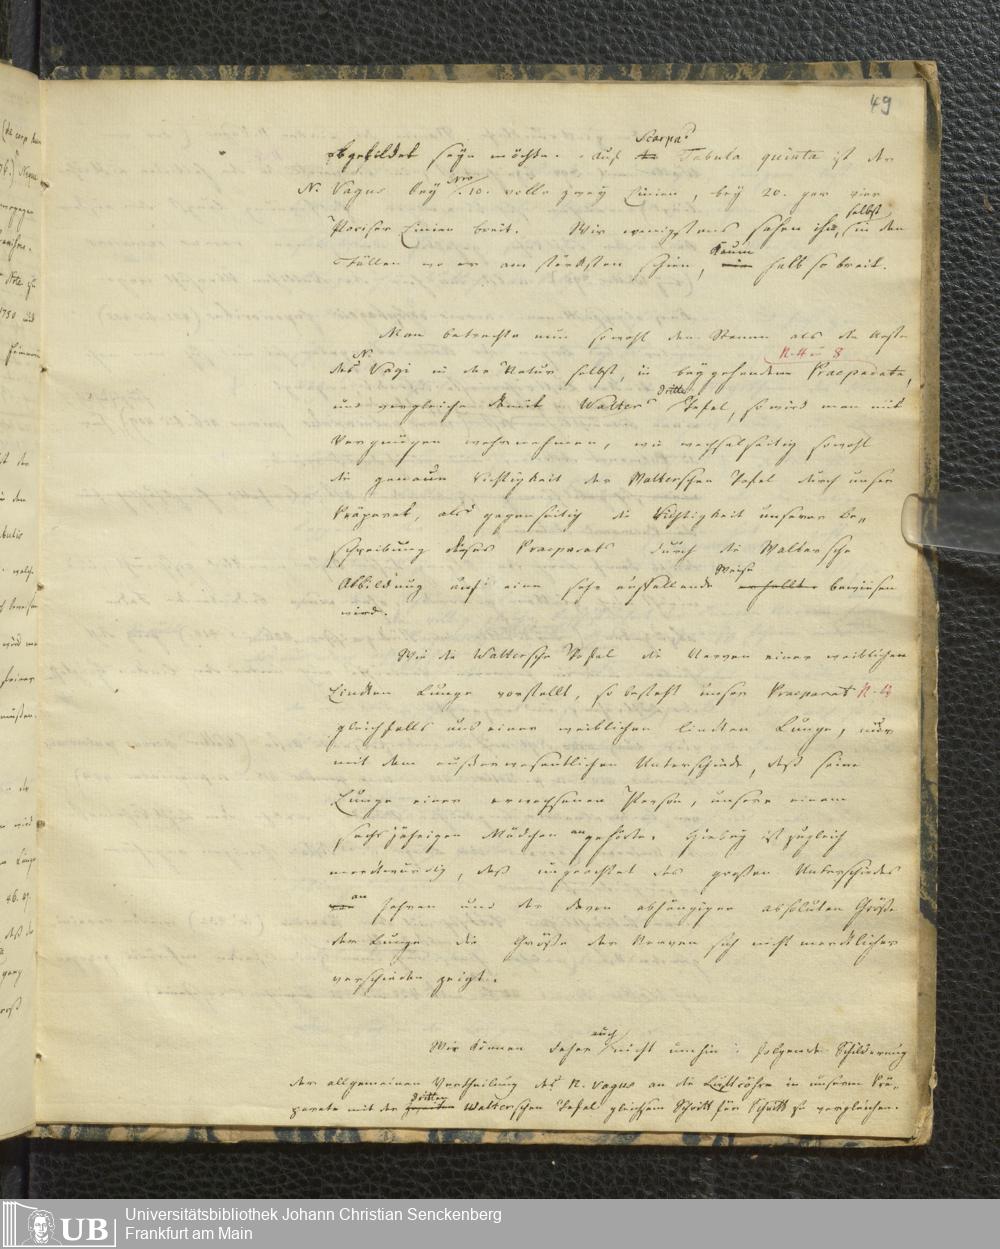 49
abgebildet seyn möchte. Auf Scarpa's Tabula quinta ist der
N. Vagus bey Nro. 10. volle zwey Linien, bey 20. gar vier
Pariser Linien breit. Wir wenigstens sahen ihn, selbst in den
Fällen wo er am stärksten schien, kaum halb so breit.
Man betrachte nun sowohl den Stamm als die Aeste
des N. Vagi in der Natur selbst, in beygehendem Praeparate, N. 4 u 8
und vergleiche damit Walters dritte Tafel, so wird man mit
Vergnügen wahrnehmen, wie wechselseitig sowohl
die genaue Richtigkeit der Walterschen Tafel durch unser
Präparat, als gegenseitig die Richtigkeit unserer Be-
schreibung dieses Praeparats durch die Waltersche
Abbildung auf eine sehr auffallende Weise bewiesen
wird.
Wie die Waltersche Tafel die Nerven einer weiblichen
linken Lunge vorstellt, so besteht unser Praeparat N. 4
gleichfalls aus einer weiblichen linken Lunge, nur
mit dem außerwesentlichen Unterschiede, daß seine
Lunge einer erwachsenen Person, unsere einem
sechsjährigen Mädchen angehörte. Hiebey ist zugleich
merkwürdig, daß ungeachtet des großen Unterschiedes
an Jahren und der davon abhängigen absoluten Größe
der Lunge die Größe der Nerven sich nicht merklicher
verschieden zeigt.
Wir können daher auch nicht umhin folgende Schilderung
der allgemeinen Vertheilung des N. vagus an die Luftröhre in unserm Prä-
parate mit der dritten Walterschen Tafel gleichsam Schritt für Schritt zu vergleichen.
UB
Universitätsbibliothek Johann Christian Senckenberg
Frankfurt am Main